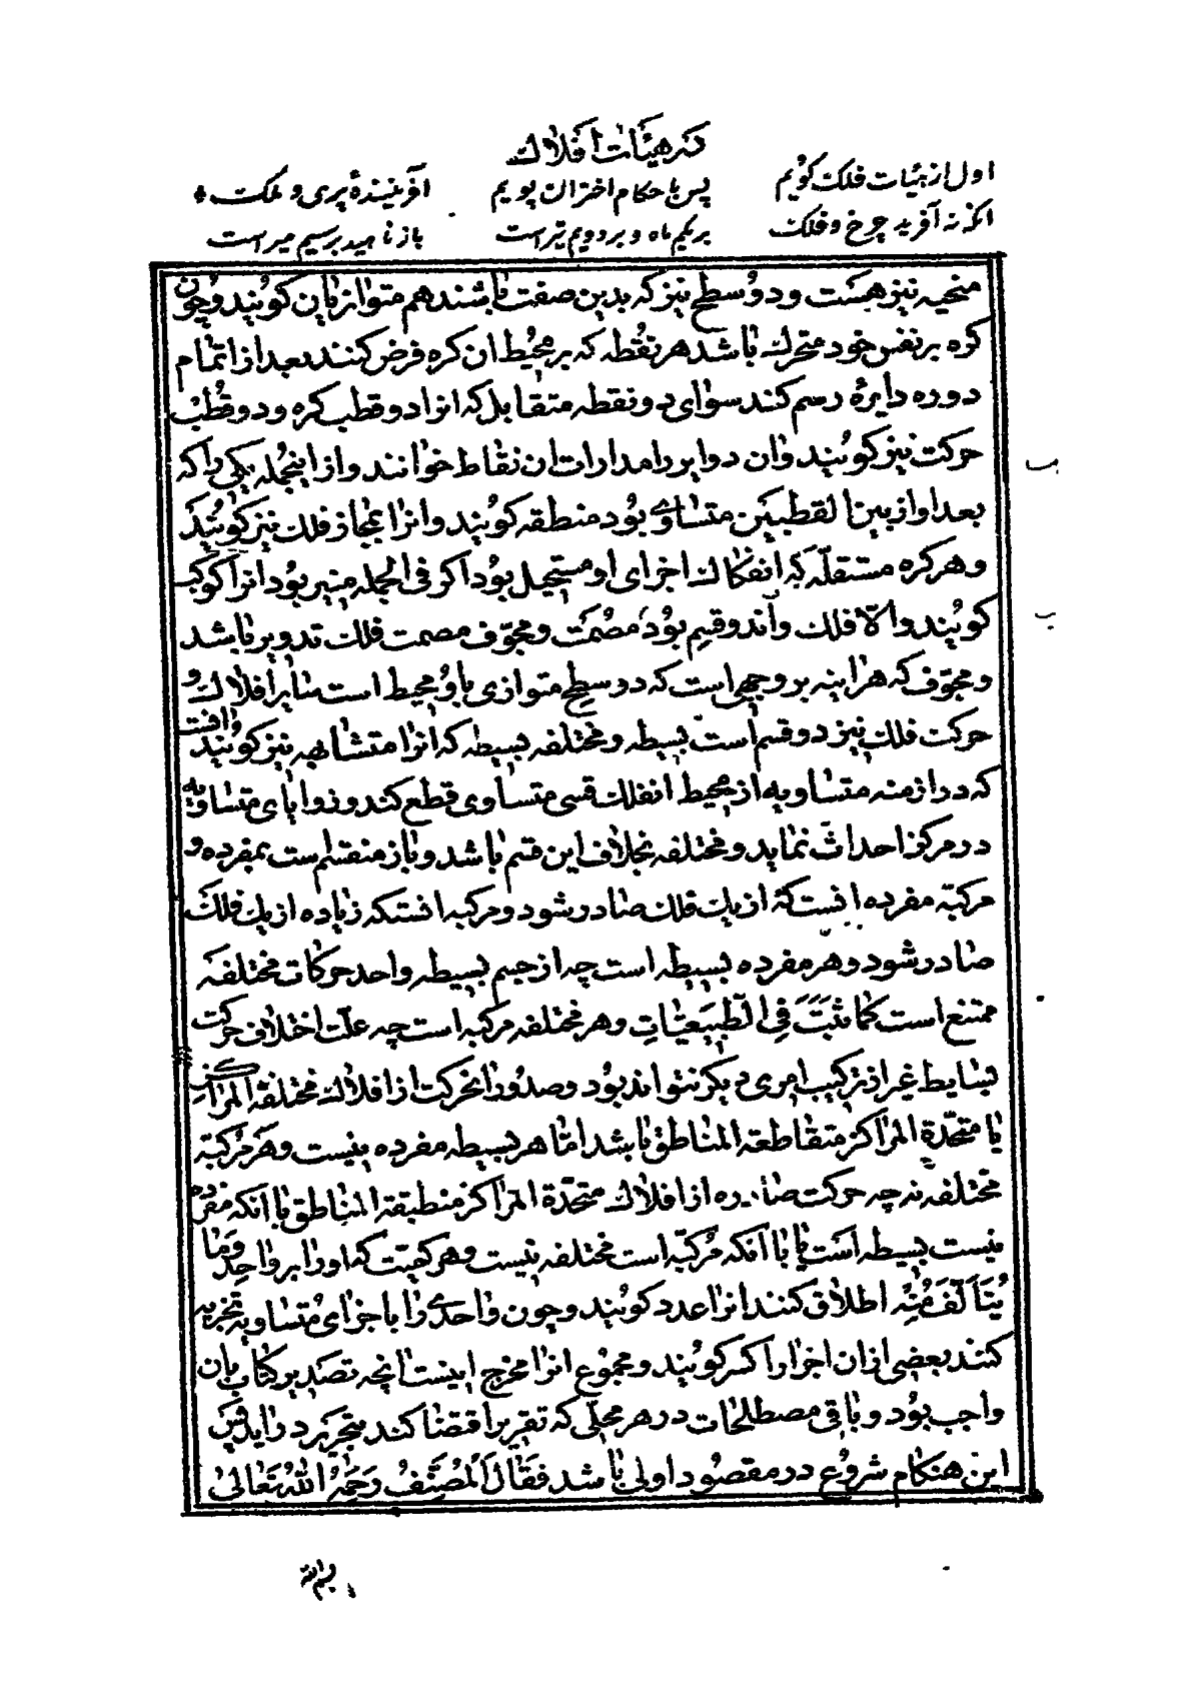 در هیئات افلاك
اول از هیئات فلك گویم پس باحکام اختران پویم آفرینندهٔ پری و ملك
آنکه نه آفرید چرخ و فلك بریکم ماه و بر دویم تیر است باز ناهید بر سیم میر است
منحیه نیز هست و دو سطح نیز که بدین صفت باشند هم متوازیان کویند و چون
کره بر نفس خود متحرك باشد هر نقطه که بر محیط ان کره فرض کنند بعد از اتمام
دوره دایرهٔ رسم کند سوای دو نقطه متقابل که انرا دو قطب کره و دو قطب
حرکت نیز کویند و ان دوایر را مدارات ان نقاط خوانند و از اینجمله یکی را که
بعد او از بین القطبین متساوی بود منطقه کویند و انرا بمجاز فلك نیز کویند
و هر کره مستقله که انفکاك اجزای او مستحیل بود اکر فی الجمله منیر بود انرا کوکب
کویند والّا فلك و آندو قسم بود مصمت و مجوّف مصمت فلك تدویر باشد
و مجوّف که هراینه بر وجهی است که دو سطح متوازی باو محیط است سایر افلاك و
حرکت فلك نیز دو قسم است بسیطه و مختلفه بسیطه که انرا متشابهه نیز کویند انست
که در ازمنه متساویه از محیط انفلك قسی متساوی قطع کند و زوایای متساویه
در مرکز احداث نماید و مختلفه بخلاف این قسم باشد و باز منقسم است بمفرده و
مرکبّه مفرده انست که از یك فلك صادر شود و مرکبه انستکه زیاده از یك فلك
صادر شود و هر مفرده بسیطه است چه از جسم بسیطه واحد حرکات مختلفه
ممتنع است کما ثبت فی الطبیعیّات و هر مختلفه مرکبه است چه علّت اختلاف حرکت
بسایط غیر از ترکیب امری دیکر نتواند بود و صدور انحرکت از افلاك مختلفة المراکز
یا متحدّة المراکز متقاطعة المناطق باشد امّا هر بسیطه مفرده نیست و هر مرکبّه
مختلفه نه چه حرکت صادره از افلاك متحدّة المراکز منطبقة المناطق باانکه مفرده
نیست بسیطه است یا باآنکه مرکبّه است مختلفه نیست و هر کمیّت که او را بر واحد و ما
یتألّف منه اطلاق کنند انرا عدد کویند و چون واحدی را باجزای متساویه تجزیه
کنند بعضی از ان اجزا را کسر کویند و مجموع انرا مخرج اینست انچه تصدیر کتاب بان
واجب بود و باقی مصطلحات در هر محلّی که تقریر اقتضا کند
این هنکام شروع در مقصود اولی باشد فقال المصنّف رحمه الله تعالی
بسم الله